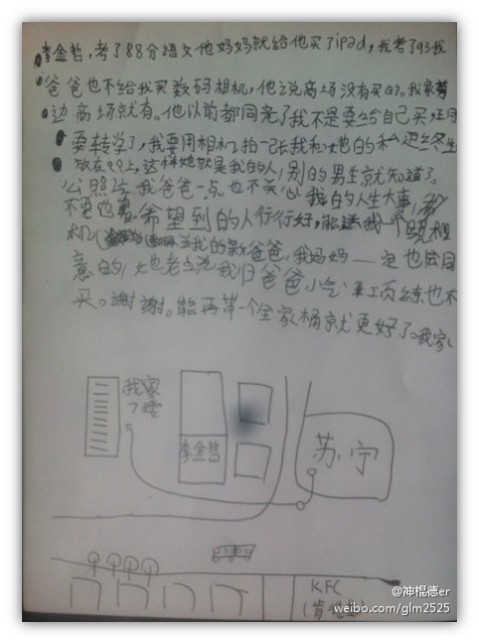 李金哲,考了88分语文他妈妈就给他买了ipad,我考了93我
爸爸也不给我买数码相机,他之说商场没有买的。我家旁
边商场就有。他以前都同意了我不是要给自己买,王月
要转学了,我要用相机拍一张我和她的
放在QQ上,这样她就是我的人,别的男生就知道了
公照片我爸爸一点也不关心我的人生大事,
不要他 希望 到的人行行好,能送我一个 相
机 当我的新爸爸,我妈妈一定也会同
意的,她老说我旧爸爸小气:来工页练也不
买。谢谢。能再带一个全家桶就更好了。我家
我家
7楼
李金哲
苏宁
KFC
(肯德
@神棍德er
weibo.com/glm2525